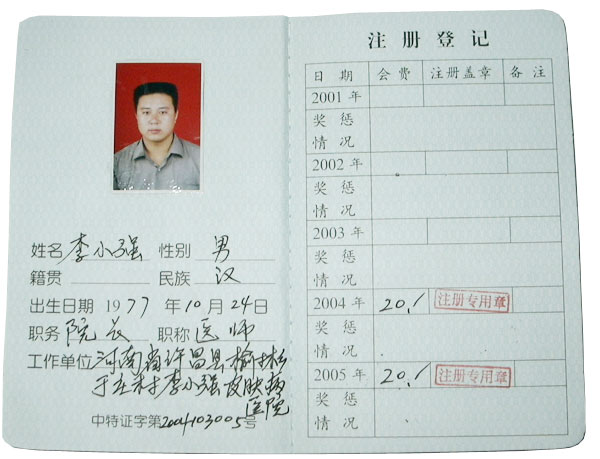 姓名 李小强 性别 男
籍贯 民族 汉
出生日期 1977 年 10 月 24 日
职务 院长 职称 医师
工作单位 河南省许昌县榆林
于庄村李小强皮肤病
医院
中特证字第2004103005号
注册登记
日期 会费 注册盖章 备注
2001 年
奖 惩
情 况
2002 年
奖 惩
情 况
2003 年
奖 惩
情 况
2004 年 20.1 注册专用章
奖 惩
情 况
2005 年 20.1 注册专用章
奖 惩
情 况